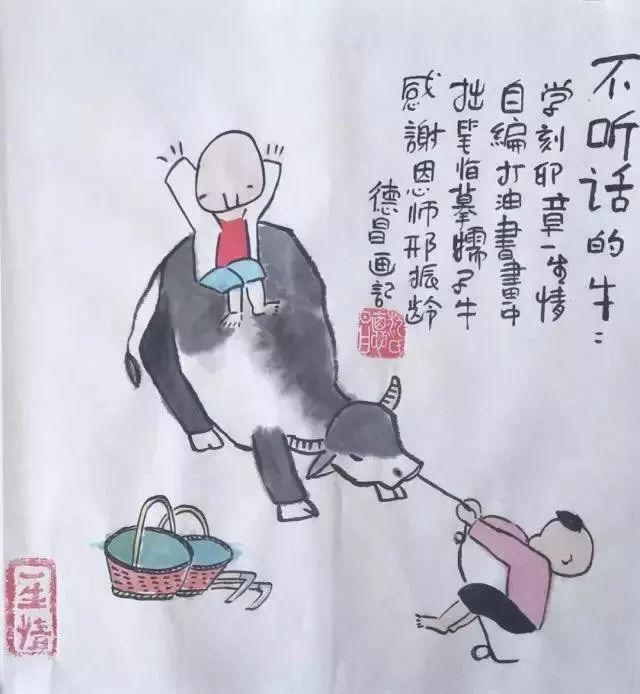 不听话的牛:
学刻印章一生情
自编打油書畫中
拙笔临摹孺子牛
感謝恩师邢振龄
德昌画记
一生情